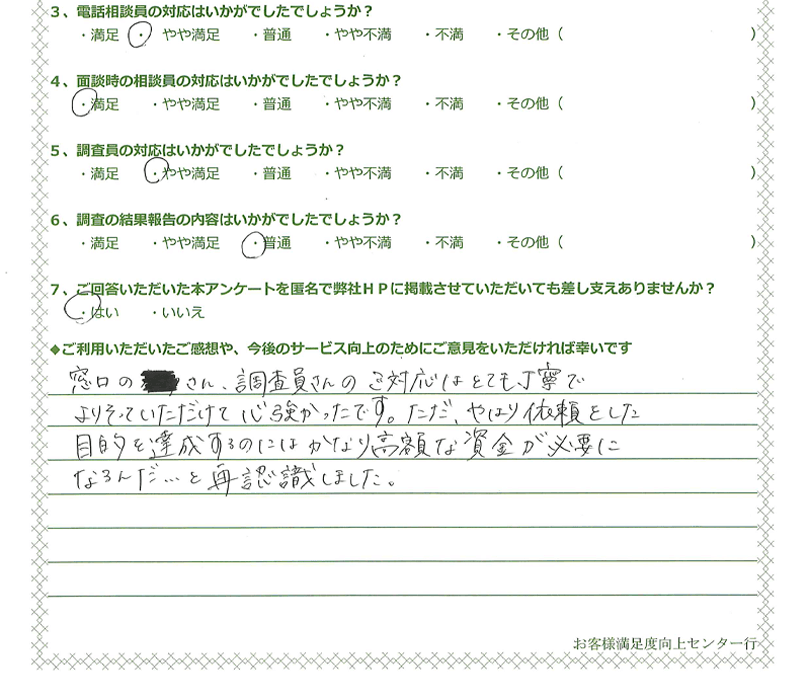 3、電話相談員の対応はいかがでしたでしょうか?
・満足 ・やや満足 ・普通 ・やや不満 ・不満 ・その他( )
4、面談時の相談員の対応はいかがでしたでしょうか?
・満足 ・やや満足 ・普通 ・やや不満 ・不満 ・その他( )
5、調査員の対応はいかがでしたでしょうか?
・満足 ・やや満足 ・普通 ・やや不満 ・不満 ・その他( )
6、調査の結果報告の内容はいかがでしたでしょうか?
・満足 ・やや満足 ・普通 ・やや不満 ・不満 ・その他( )
7、ご回答いただいた本アンケートを匿名で弊社HPに掲載させていただいても差し支えありませんか?
・はい ・いいえ
◆ご利用いただいたご感想や、今後のサービス向上のためにご意見をいただければ幸いです
窓口の さん、調査員さんのご対応はとても丁寧で
よりそっていただけて心強かったです。ただ、やはり依頼をした
目的を達成するのにはかなり高額な資金が必要に
なるんだ…と再認識しました。
お客様満足度向上センター行